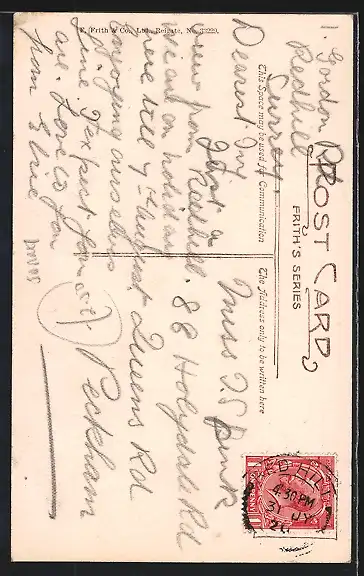 F. Frith & Co., Ltd., Reigate, No. 33229.
POST CARD
FRITH'S SERIES
This Space may be used for Communication
The Address only to be written here
Gordon Rd
Redhill
Surrey
Dearest Ivy
Just a
view from Redhill
went on holiday
here till 7th August
enjoying ourselves
fine I expect you
are. Love to you
from Elsie
Miss I. S. Punk
88 Holydale Rd
Queens Rd
Peckham
RED HILL
4.30 PM
31 JY